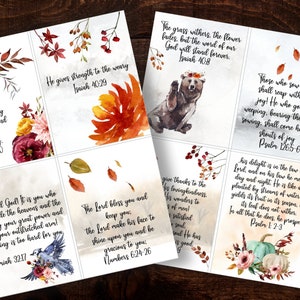 He gives strength to the weary
Isaiah 40:29
God! It is you who
the heavens and the
your great power and
outstretched arm!
is too hard for
32:17
The Lord bless you and
keep you;
the Lord make his face to
shine upon you and be
gracious to you;
Numbers 6:24-26
The grass withers, the flower
fades, but the word of our
God will stand forever.
Isaiah 40:8
Those who sow
shall reap with
joy! He who goes
weeping, bearing the
sowing, shall come
shouts of joy
Psalm 126:5-6
give thanks to the
his lovingkindness,
wonders
of
satisfied
soul,
the
his delight is in the law
Lord, and on his law he
day and night. He is like
planted by streams of
yields its fruit in its season,
its leaf does not wither.
In all that he does, he prospers
Psalm 1:2-3